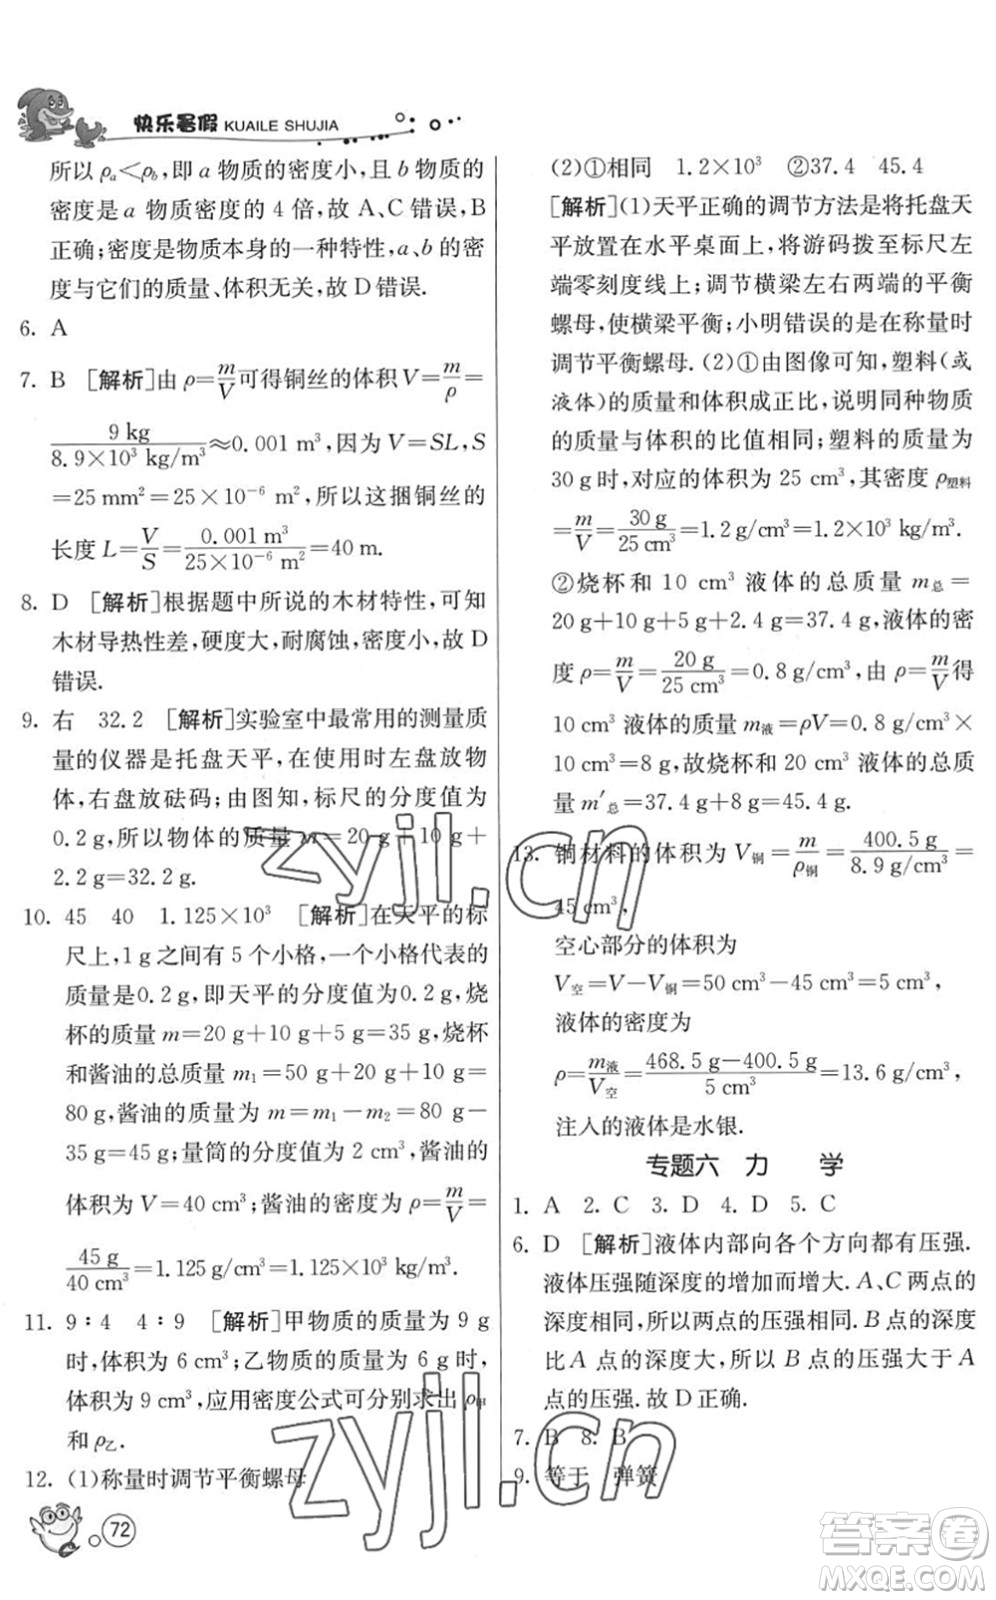 快乐暑假 KUAILE SHUJIA
所以 ρa<ρb,即 a 物质的密度小,且 b 物质的
密度是 a 物质密度的 4 倍,故 A、C 错误,B
正确;密度是物质本身的一种特性,a、b 的密
度与它们的质量、体积无关,故 D 错误.
6. A
7. B [解析]由 ρ=m/V可得铜丝的体积 V=m/ρ=
9 kg/8.9×10³ kg/m³≈0.001 m³,因为 V=SL,S
=25 mm²=25×10⁻⁶ m²,所以这捆铜丝的
长度 L=V/S=0.001 m³/25×10⁻⁶ m²=40 m.
8. D [解析]根据题中所说的木材特性,可知
木材导热性差,硬度大,耐腐蚀,密度小,故 D
错误.
9. 右 32.2 [解析]实验室中最常用的测量质
量的仪器是托盘天平,在使用时左盘放物
体,右盘放砝码;由图知,标尺的分度值为
0.2 g,所以物体的质量 m=20 g+10 g+
2.2 g=32.2 g.
10. 45 40 1.125×10³ [解析]在天平的标
尺上,1 g 之间有 5 个小格,一个小格代表的
质量是0.2 g,即天平的分度值为0.2 g,烧
杯的质量 m=20 g+10 g+5 g=35 g,烧杯
和酱油的总质量 m₁=50 g+20 g+10 g=
80 g,酱油的质量 m=m₁-m₂=80 g-
35 g=45 g;量筒的分度值为 2 cm³,酱油的
体积为 V=40 cm³;酱油的密度为 ρ=m/V=
45 g/40 cm³=1.125 g/cm³=1.125×10³ kg/m³.
11. 9∶4 4∶9 [解析]甲物质的质量为 9 g
时,体积为 6 cm³;乙物质的质量为 6 g 时,
体积为 9 cm³,应用密度公式可分别求出 ρ甲
和 ρ乙.
12. (1)称量时调节平衡螺母
72
(2)①相同 1.2×10³ ②37.4 45.4
[解析](1)天平正确的调节方法是将托盘天
平放置在水平桌面上,将游码拨至标尺左
端零刻度线上;调节横梁左右两端的平衡
螺母,使横梁平衡;小明错误的是在称量时
调节平衡螺母.(2)①由图像可知,塑料(或
液体)的质量和体积成正比,说明同种物质
的质量与体积的比值相同;塑料的质量为
30 g时,对应的体积为 25 cm³,其密度 ρ塑料
=m/V=30 g/25 cm³=1.2 g/cm³=1.2×10³ kg/m³.
②烧杯和 10 cm³ 液体的总质量 m总=
20 g+10 g+5 g+2.4 g=37.4 g,液体的密
度 ρ=m/V=20 g/25 cm³=0.8 g/cm³,由 ρ=m/V得
10 cm³ 液体的质量 m液=ρV=0.8 g/cm³×
10 cm³=8 g,故烧杯和 20 cm³ 液体的总质
量 m′总=37.4 g+8 g=45.4 g.
13. 铜材料的体积为 V铜=m/ρ铜=400.5 g/8.9 g/cm³=
45 cm³,
空心部分的体积为
V空=V-V铜=50 cm³-45 cm³=5 cm³,
液体的密度为
ρ=m液/V空=468.5 g-400.5 g/5 cm³=13.6 g/cm³,
注入的液体是水银.
专题六 力 学
1. A 2. C 3. D 4. D 5. C
6. D [解析]液体内部向各个方向都有压强.
液体压强随深度的增加而增大.A、C 两点的
深度相同,所以两点的压强相同.B 点的深度
比A 点的深度大,所以 B 点的压强大于 A
点的压强.故 D 正确.
7. B 8. B
9. 等于 弹簧
zyjl.cn
zyjl.cn
答案圈
MXQE.COM